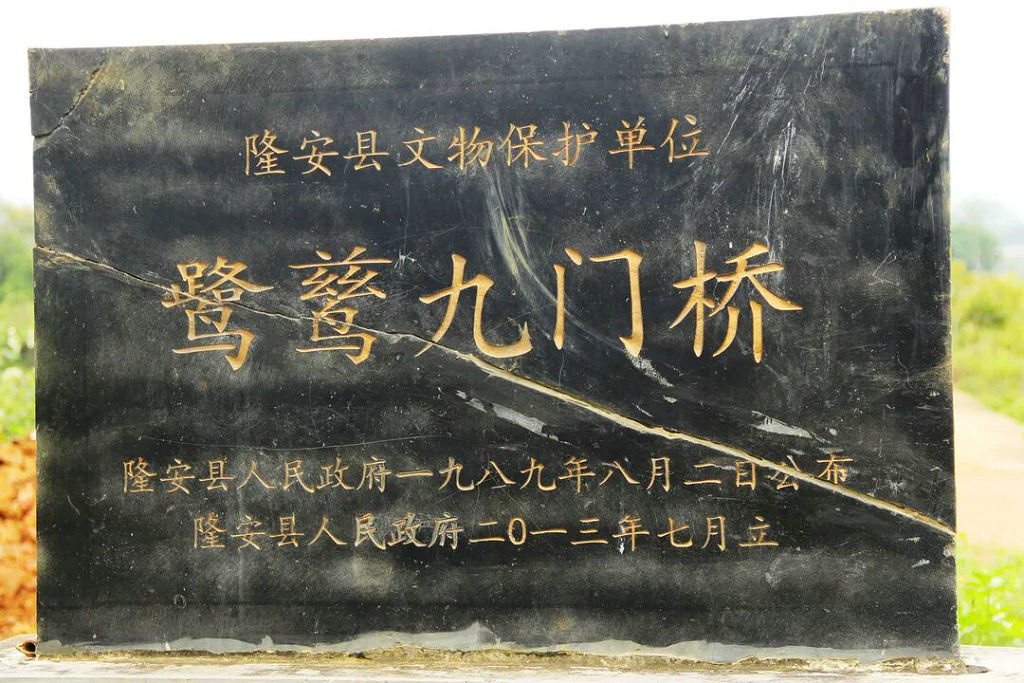 隆安县文物保护单位
鹭鹚九门桥
隆安县人民政府一九八九年八月二日公布
隆安县人民政府二0一三年七月立